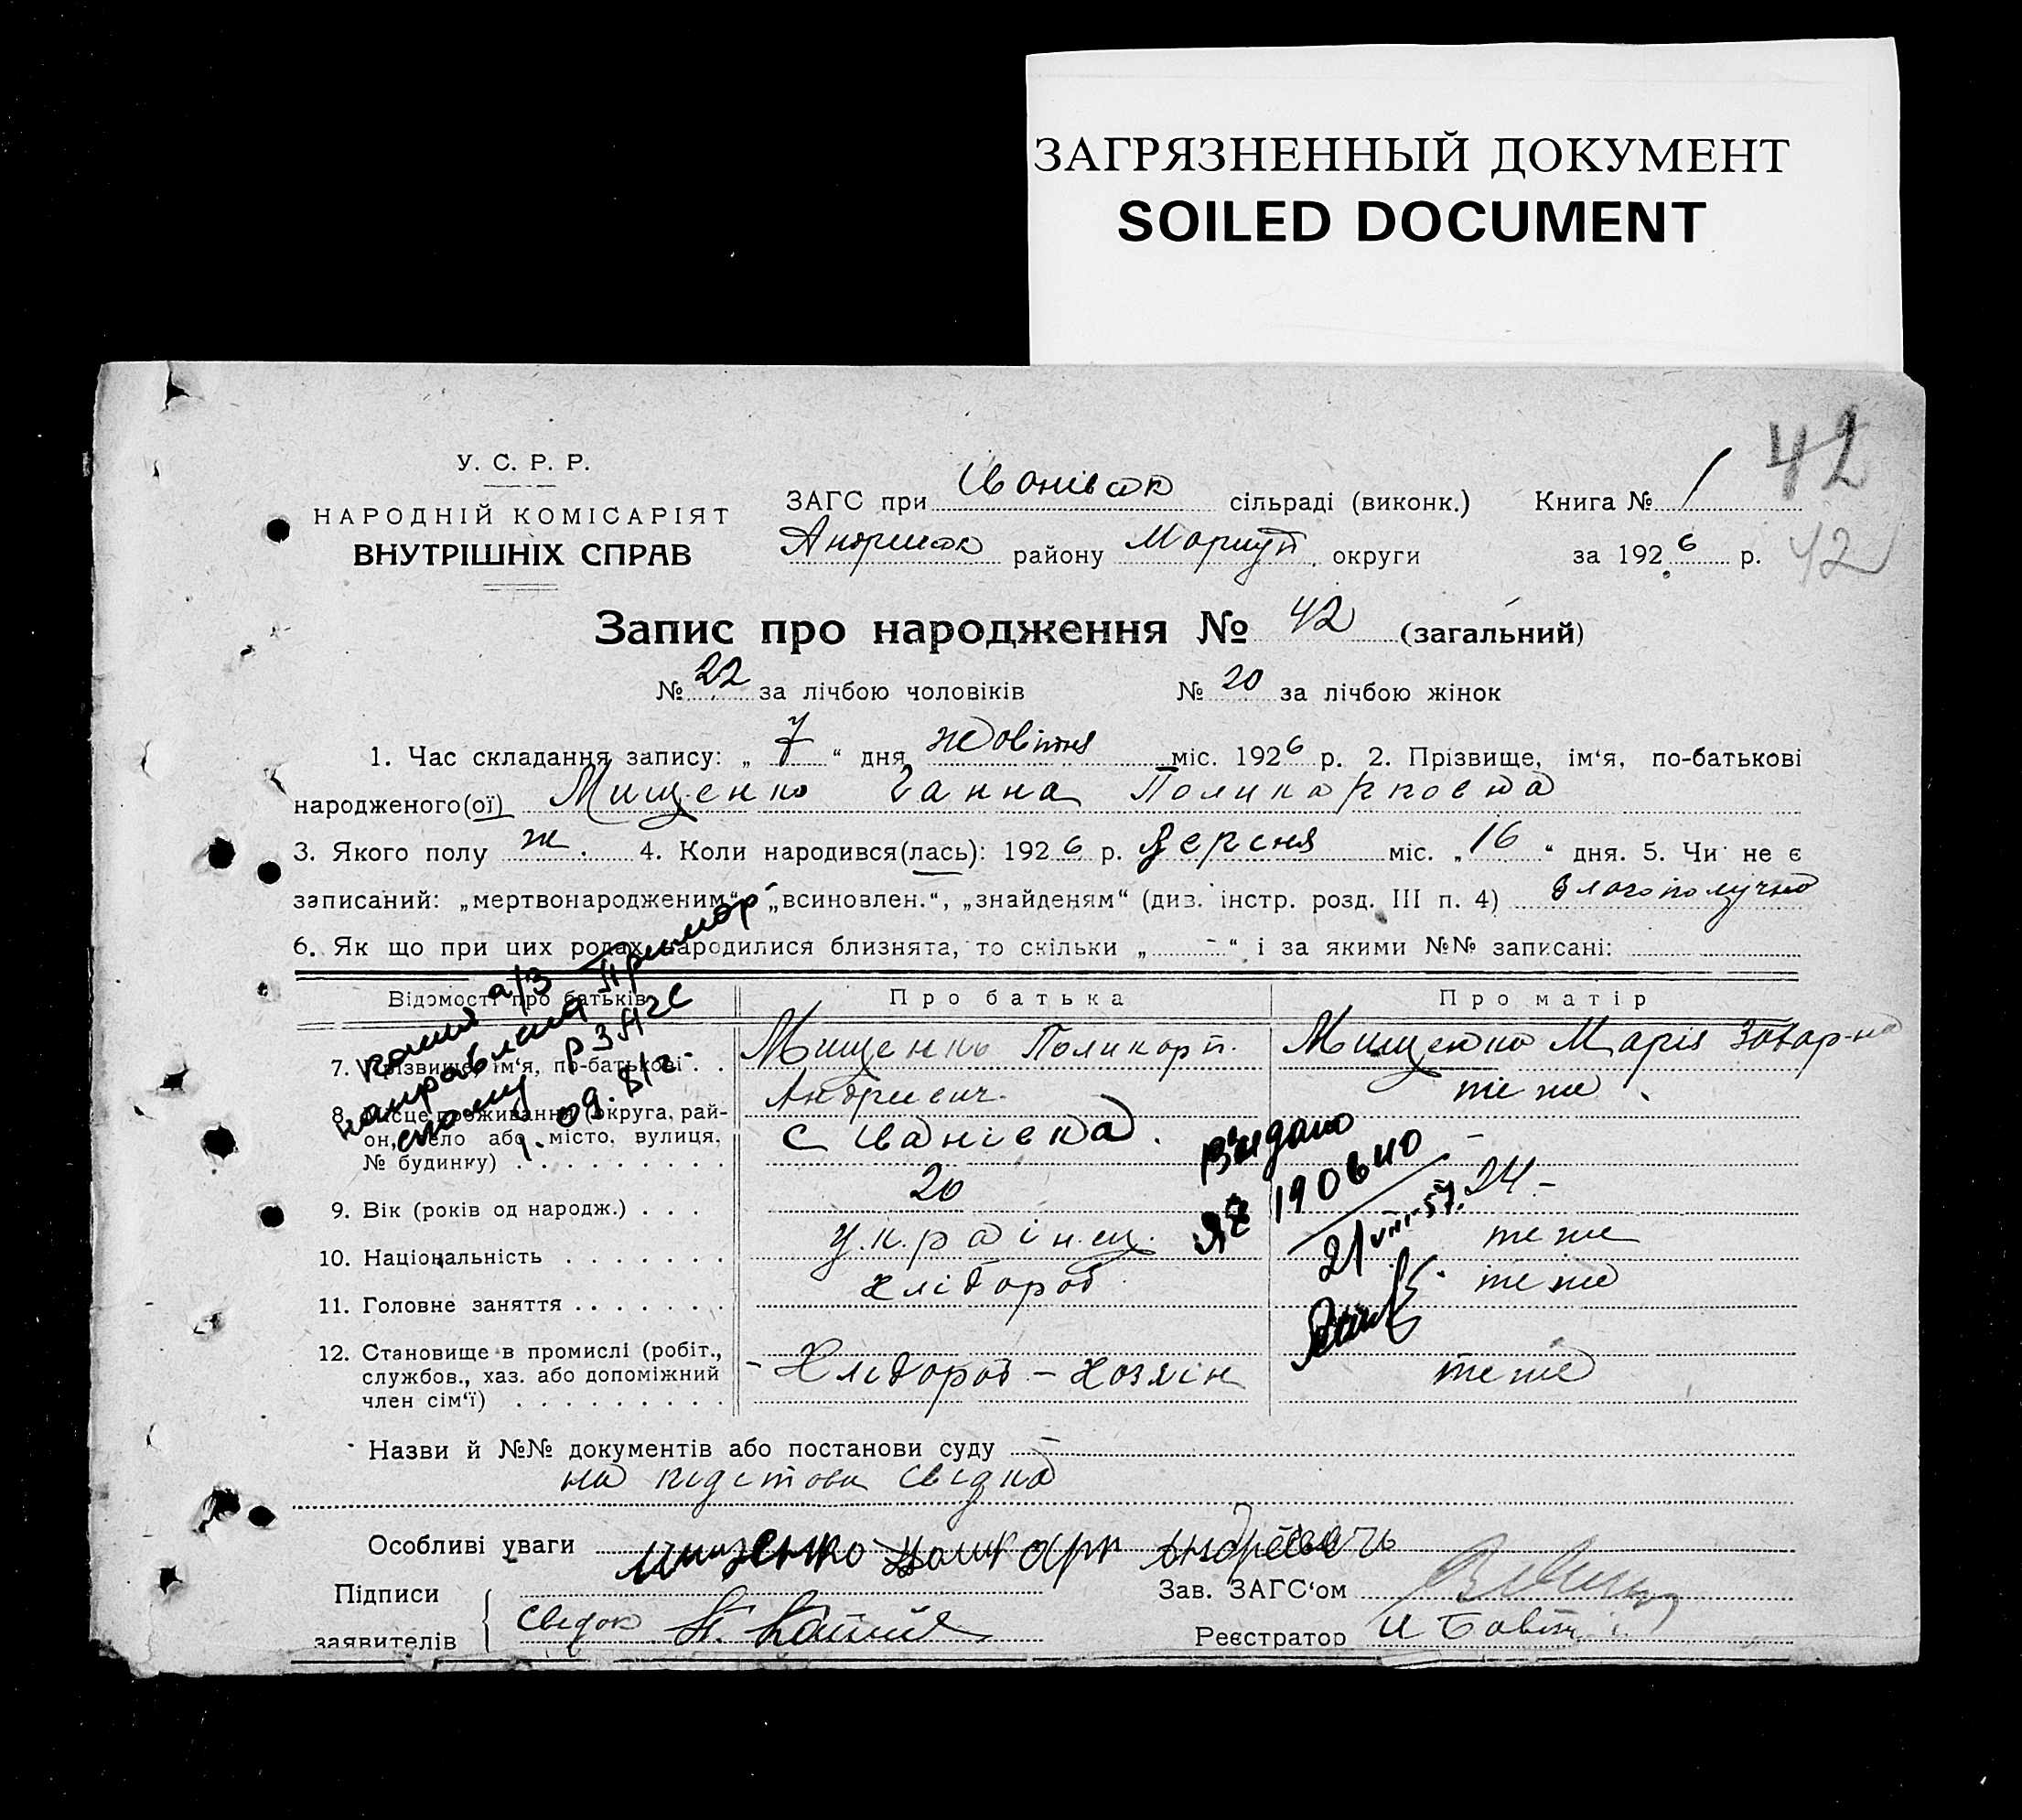 ЗАГРЯЗНЕННЫЙ ДОКУМЕНТ
SOILED DOCUMENT
42
У. С. Р. Р.
НАРОДНІЙ КОМІСАРІЯТ
ВНУТРІШНІХ СПРАВ
ЗАГС при Іванівск сільраді (виконк.) Книга № 1
Андриевск району Мариуп. округи за 1926 р. 42
Запис про народження № 42 (загальний)
№ 22 за лічбою чоловіків № 20 за лічбою жінок
1. Час складання запису: „ 7 “ дня жовтня міс. 1926 р. 2. Прізвище, ім‘я, по-батькові
народженого(ої) Мищенко Ганна Поликарповна
3. Якого полу ж. 4. Коли народився(лась): 1926 р. Версня міс. „16“ дня. 5. Чи не є
записаний: „мертвонародженим“, „всиновлен.“, „знайденям“ (див. інстр. розд. III п. 4) благополучно
6. Як що при цих родах народилися близнята, то скільки „ - “ і за якими №№ записані:
Відомості про батьків Про батька Про матір
7. Прізвище, ім‘я, по-батькові Мищенко Поликарп. Мищенко Марія Захар-на
Андриевич. теже
8. Місце проживання (округа, рай-
он, село або місто, вулиця,
№ будинку) с Іванівка. -
9. Вік (років од народж.) 20 24-
10. Національність Українец. теже
11. Головне заняття Хлібороб теже
12. Становище в промислі (робіт.,
службов., хаз. або допоміжний
член сім‘ї) - Хлібороб - Хозяін теже
копия а/з
направлена Примор
скому РЗАГС
Выдано
ЯЖ 190640
21 VIII-57.
Назви й №№ документів або постанови суду —
на підстови свідка
Особливі уваги мищенко Поликарп Андреевичь
Підписи
заявителів
свидок
Зав. ЗАГС‘ом
Реєстратор И